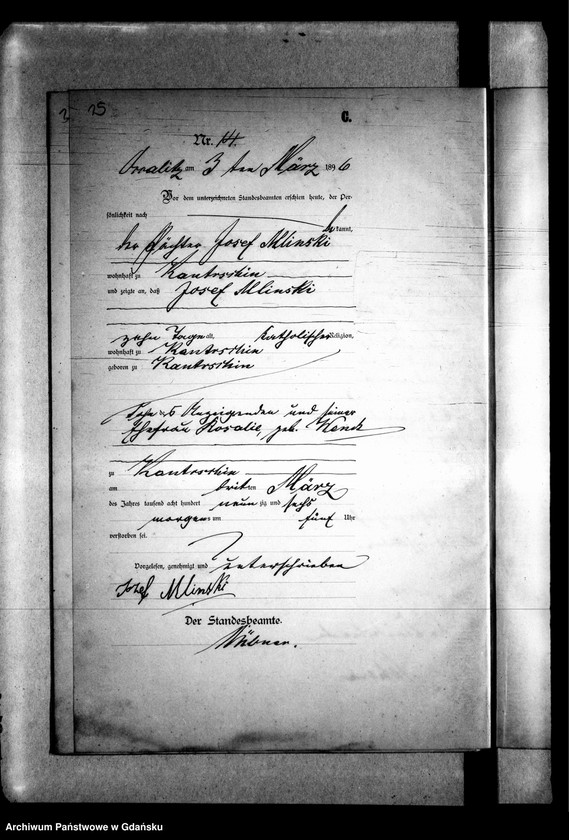 25
C.
Nr. 14.
am 3 ten März 1896
Vor dem unterzeichneten Standesbeamten erschien heute, der Per-
sönlichkeit nach
bekannt,
der Pächter Josef Mlinski
wohnhaft zu Kantrschin
und zeigte an, daß Josef Mlinski
zehn Tage alt, katholischer Religion,
wohnhaft zu Kantrschin
geboren zu Kantrschin
Sohn des Anzeigenden und seiner
Ehefrau Rosalie, geb.
zu Kantrschin
am dritten März
des Jahres tausend acht hundert neunzig und sechs
morgens um fünf Uhr
verstorben sei.
Vorgelesen, genehmigt und unterschrieben
Josef Mlinski
Der Standesbeamte.
Archiwum Państwowe w Gdańsku